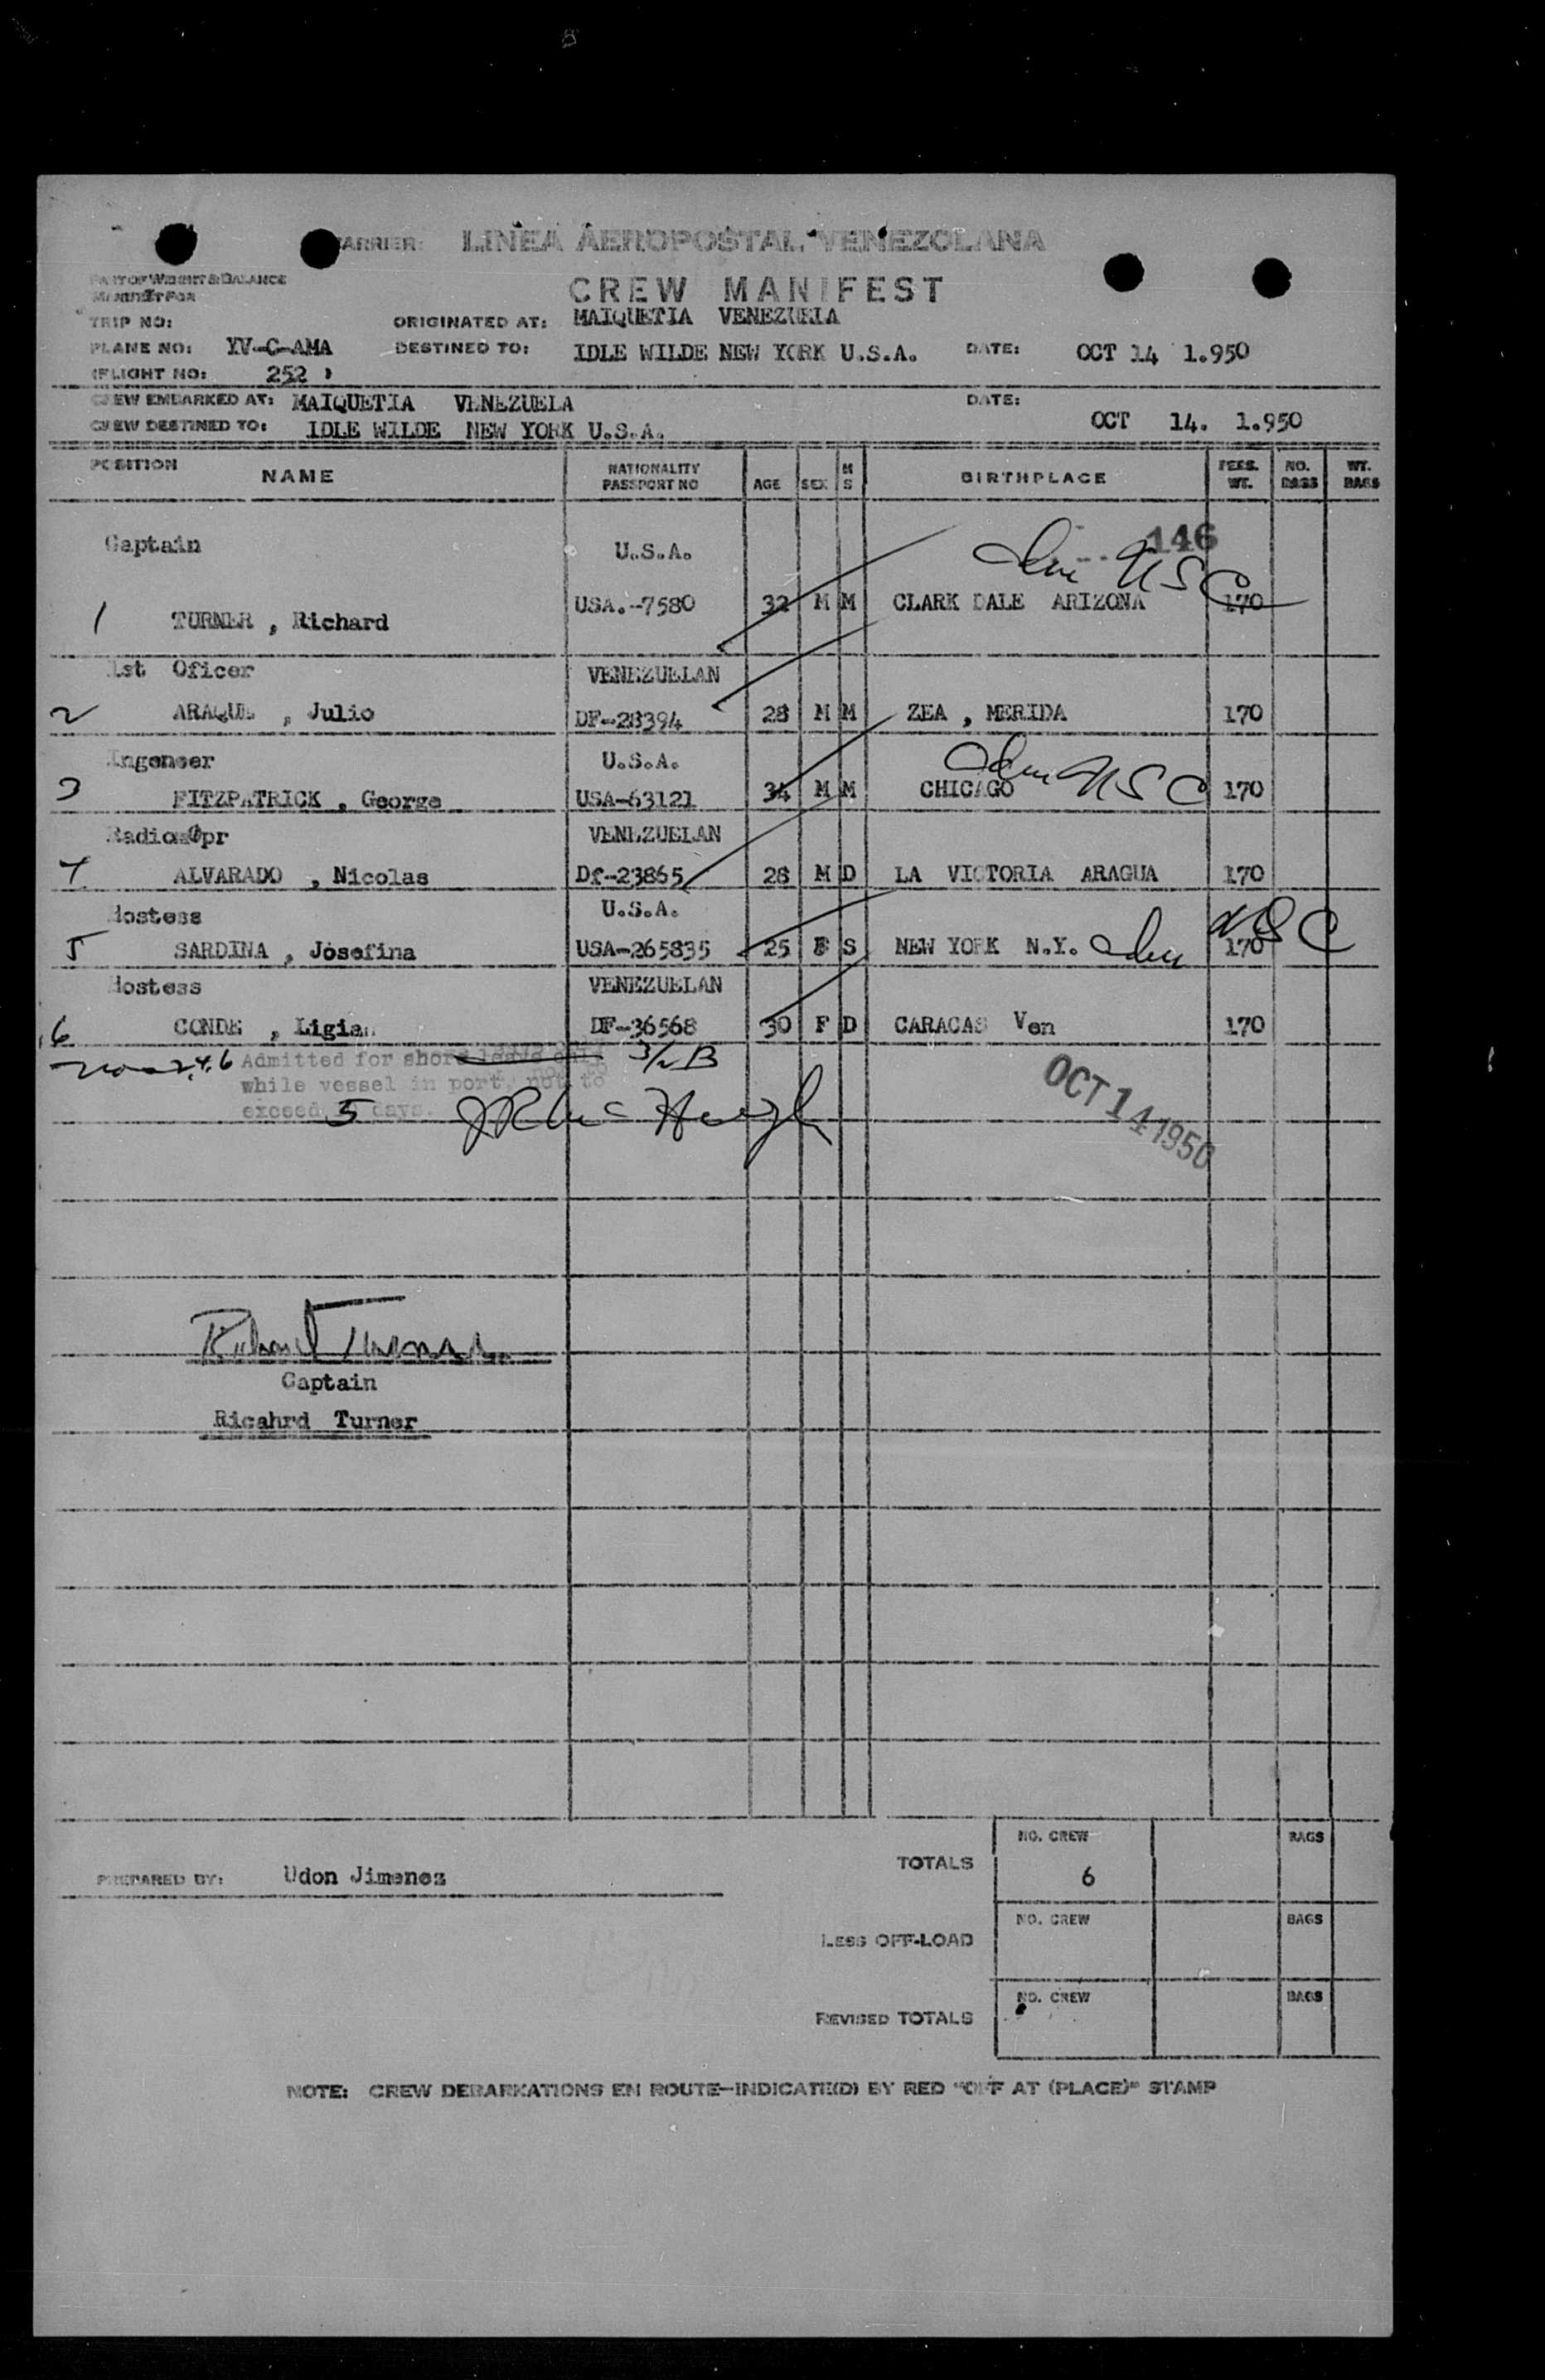 CARRIER: LINEA AEROPOSTAL VENEZOLANA
PART OF WEIGHT & BALANCE
MANIFEST FOR
CREW MANIFEST
TRIP NO: ORIGINATED AT: MAIQUETIA VENEZUELA
PLANE NO: YV-C-AMA DESTINED TO: IDLE WILDE NEW YORK U.S.A. DATE: OCT 14 1.950
(FLIGHT NO: 252 )
CREW EMBARKED AT: MAIQUETIA VENEZUELA DATE:
CREW DESTINED TO: IDLE WILDE NEW YORK U.S.A. OCT 14. 1.950
POSITION NAME NATIONALITY PASSPORT NO AGE SEX M S BIRTHPLACE PERS. WT. NO. BAGS WT. BAGS
146
Captain U.S.A. Adm USC
1 TURNER , Richard USA.-7580 32 M M CLARK DALE ARIZONA 170
1st Oficer VENEZUELAN
2 ARAQUE , Julio DF-28394 28 M M ZEA , MERIDA 170
Ingeneer U.S.A. Adm USC
3 FITZPATRICK , George USA-63121 34 M M CHICAGO 170
Radio Opr VENEZUELAN
4 ALVARADO , Nicolas Df-23865 28 M D LA VICTORIA ARAGUA 170
Hostess U.S.A.
5 SARDINA , Josefina USA-265835 25 F S NEW YORK N.Y. Adm USC 170
Hostess VENEZUELAN
6 CONDE , Ligia DF-36568 30 F D CARACAS Ven 170
Nos 2,4,6 Admitted for shore leave only 3/2 B
while vessel in port, not to
exceed 5 days.
OCT 14 1950
Richard Turner
Captain
Ricahrd Turner
PREPARED BY: Udon Jimenez
TOTALS NO. CREW 6 BAGS
LESS OFF-LOAD NO. CREW BAGS
REVISED TOTALS NO. CREW BAGS
NOTE: CREW DEBARKATIONS EN ROUTE-INDICATE(D) BY RED "OFF AT (PLACE)" STAMP